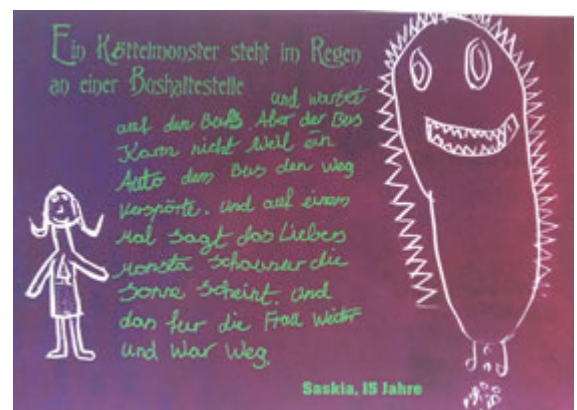 Ein Köttelmonster steht im Regen
an einer Bushaltestelle
und wartet
auf den Buß. Aber der Bus
Kam nicht Weil ein
Auto dem Bus den Weg
verspörte. und auf einem
Mal sagt das Liebes
Monsta Schau nur die
Sonne Scheint. und
dan fur die Frau Weiter
und War Weg.
Saskia, 15 Jahre